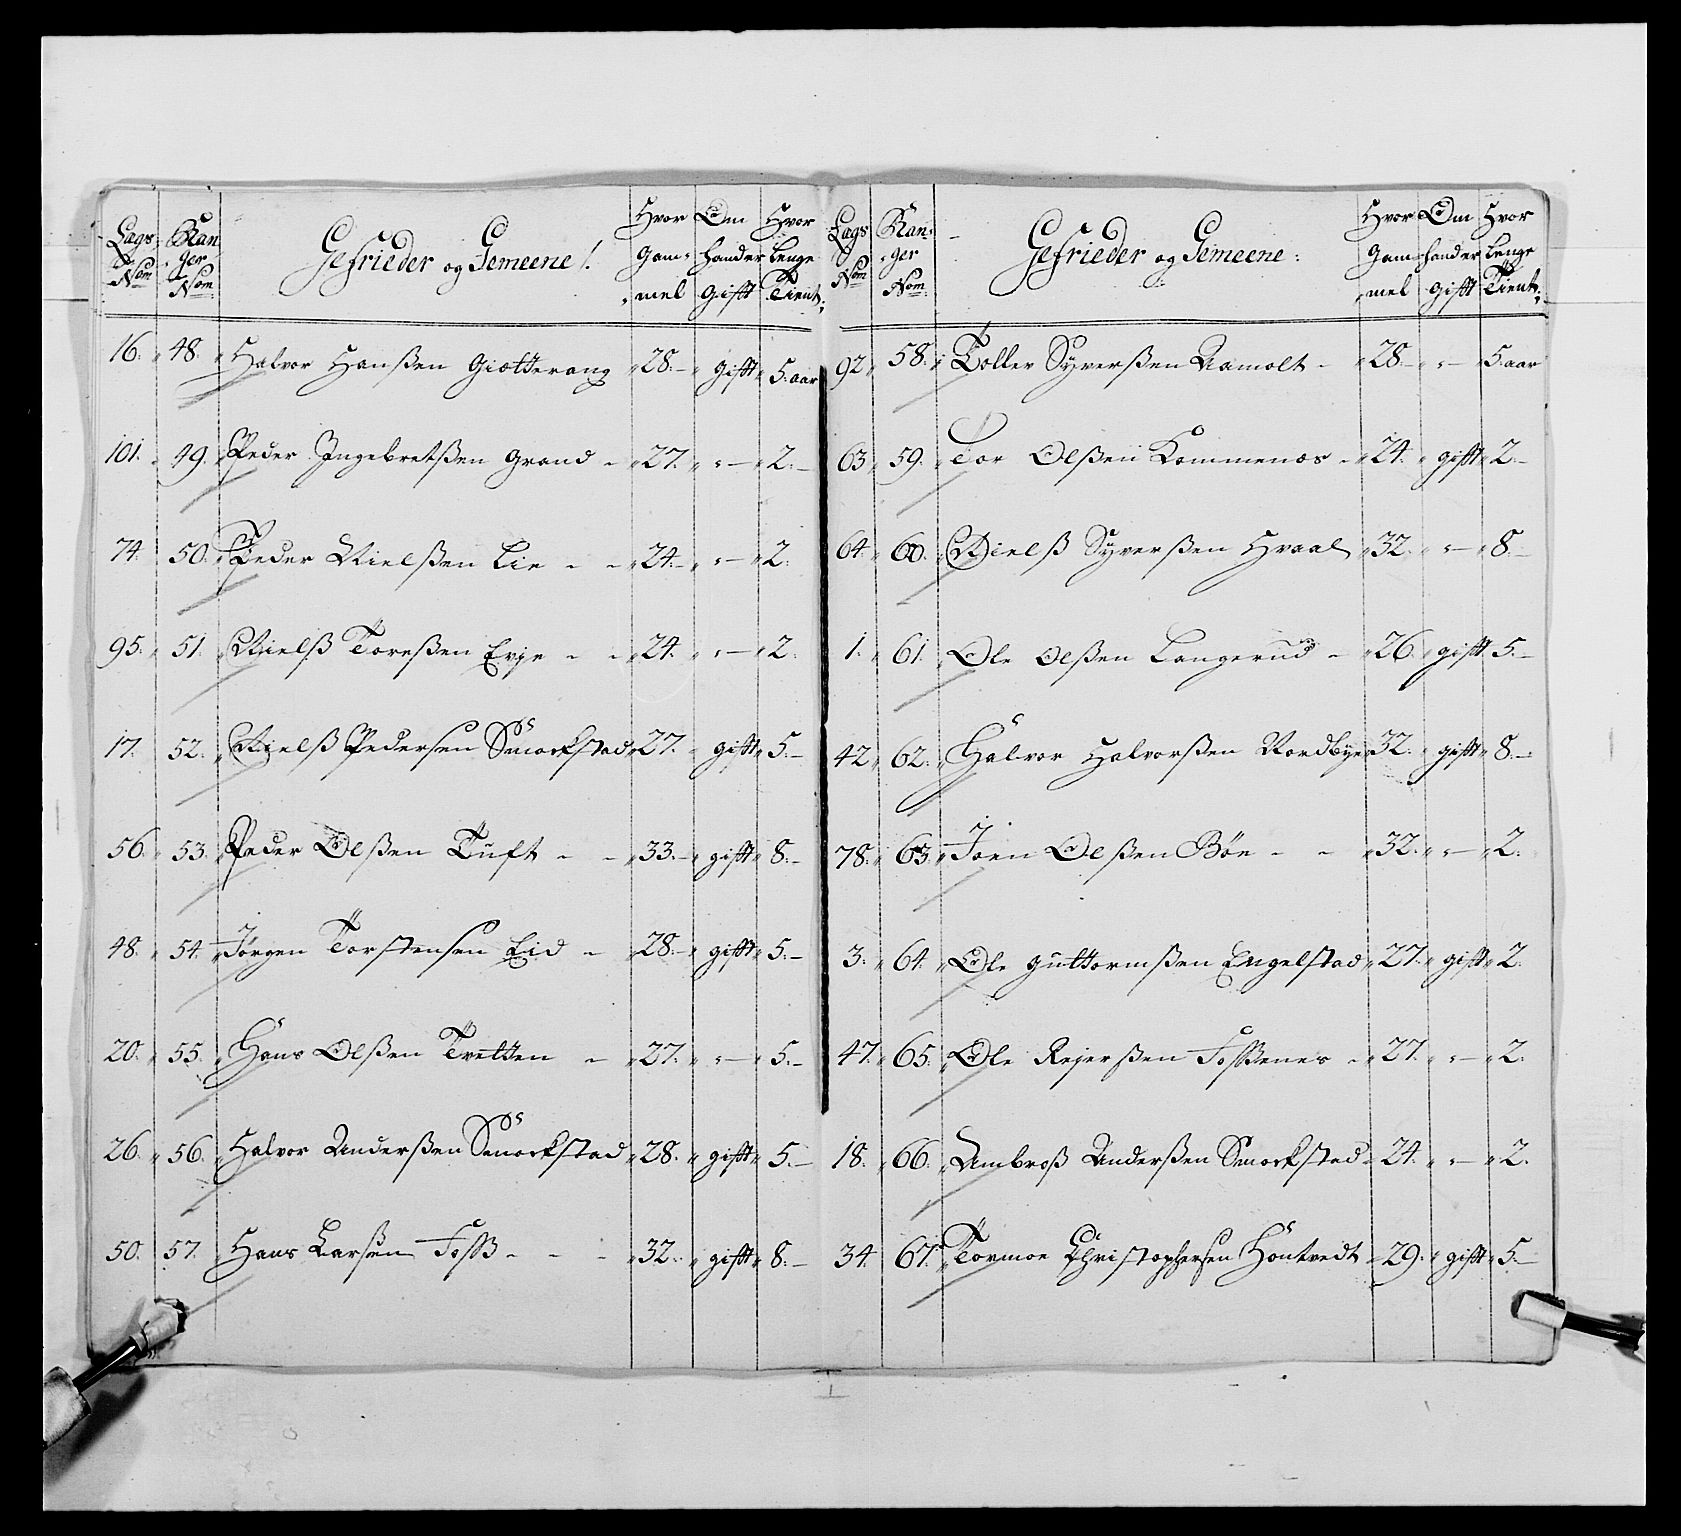 Lags Nom: | Ran: ger Nom: | Gefrieder og Gemeene /: | Hvor Gam: mel | Om hand er gifft | Hvor lenge Tient:
16. | 48. | Halvor Hanßen Giotterang | 28.- | gifft | 5. aar
101. | 49. | Peder Ingebretßen Grand - | 27. | - | 2.-
74. | 50. | Peder Nielßen Lie - - | 24.- | - | 2.
95. | 51. | Nielß Toreßen Evje - - | 24. | - | 2.
17. | 52. | Nielß Pedersen Smorkstad | 27. | gifft | 5.-
56. | 53. | Peder Olßen Tuft - - | 33.- | gifft | 8.-
48. | 54. | Jörgen Torstensen Eid - | 28.- | gifft | 5.-
20. | 55. | Hans Olßen Tvetten - | 27. | - | 5.-
26. | 56. | Halvor Anderßen Smorkstad | 28. | gifft | 5.-
50. | 57. | Hans Larsen Foss - - - | 32. | gifft | 8.-
Lags Nom | Ran: ger Nom: | Gefrieder og Gemeene: | Hvor Gam mel | Om hand er gifft | Hvor lenge Tient:
92 | 58. | Toller Syverßen Aamolt - | 28.- | - | 5. aar
63 | 59. | Tor Olßen Kommenos - | 24. | gifft | 2.-
64 | 60. | Nielß Syverßen Hvaal | 32. | - | 8.-
1. | 61. | Ole Olßen Langerud - | 26. | gifft | 5.-
42 | 62. | Halvor Halvorßen Nordbye | 32. | gifft | 8.-
78. | 63. | Joen Olßen Böe - - | 32. | - | 2.
3. | 64. | Ole Guttormßen Engelstad | 27. | gifft | 2.
47. | 65. | Ole Rejerßen Fossenes - | 27. | - | 2.
18. | 66. | Ambroß Anderßen Smorkstad | 24. | - | 2.
34. | 67. | Tormoe Christophersen Höntvedt | 29. | gifft | 5.-